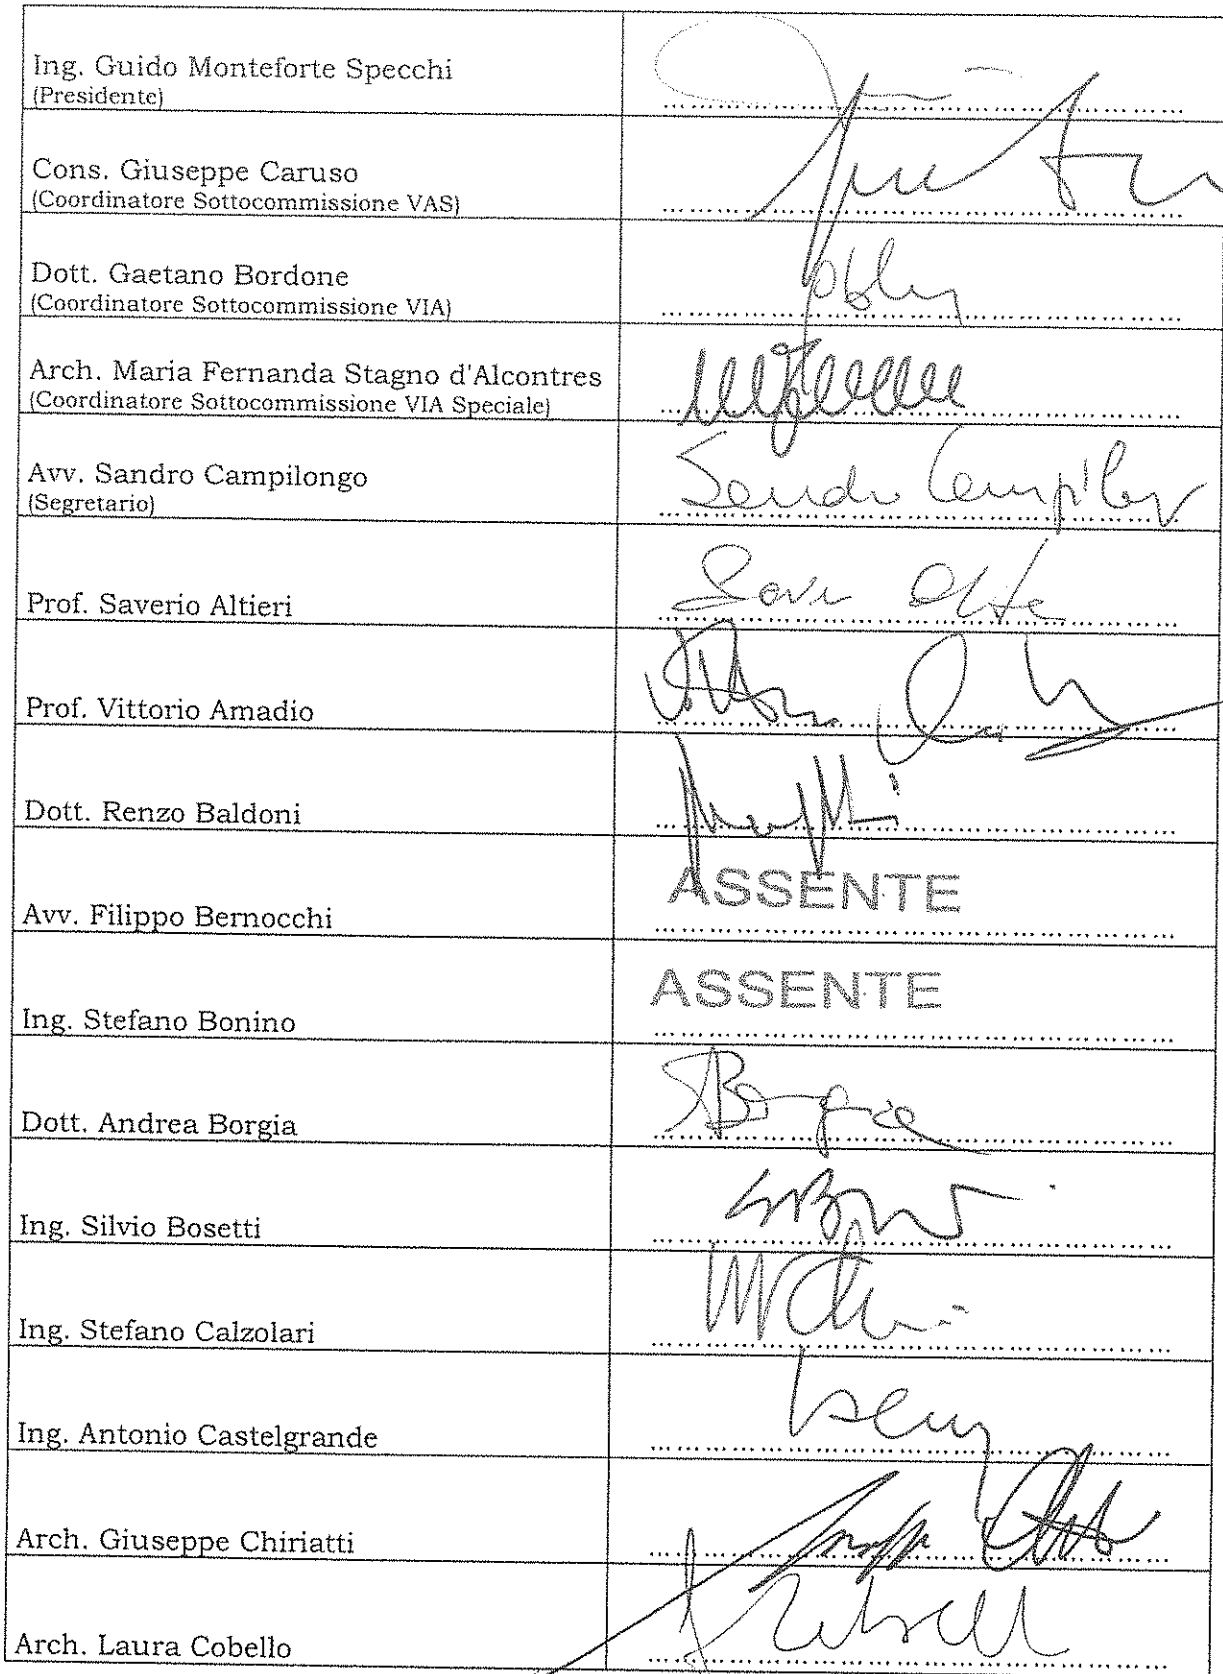 Ing. Guido Monteforte Specchi
(Presidente)
Cons. Giuseppe Caruso
(Coordinatore Sottocommissione VAS)
Dott. Gaetano Bordone
(Coordinatore Sottocommissione VIA)
Arch. Maria Fernanda Stagno d'Alcontres
(Coordinatore Sottocommissione VIA Speciale)
Avv. Sandro Campilongo
(Segretario)
Prof. Saverio Altieri
Prof. Vittorio Amadio
Dott. Renzo Baldoni
Avv. Filippo Bernocchi
ASSENTE
Ing. Stefano Bonino
ASSENTE
Dott. Andrea Borgia
Ing. Silvio Bosetti
Ing. Stefano Calzolari
Ing. Antonio Castelgrande
Arch. Giuseppe Chiriatti
Arch. Laura Cobello